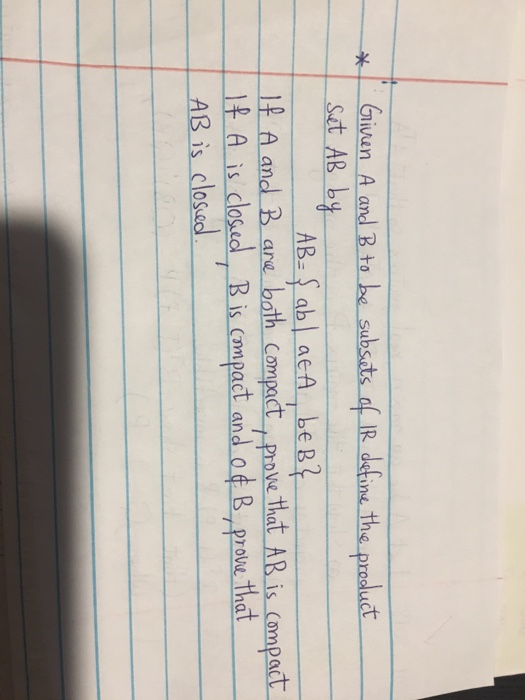 * Given A and B to be subsets of IR define the product
set AB by
AB = { ab | a∈A, b∈B }
If A and B are both compact, prove that AB is compact
If A is closed, B is compact and 0 ∉ B, prove that
AB is closed.